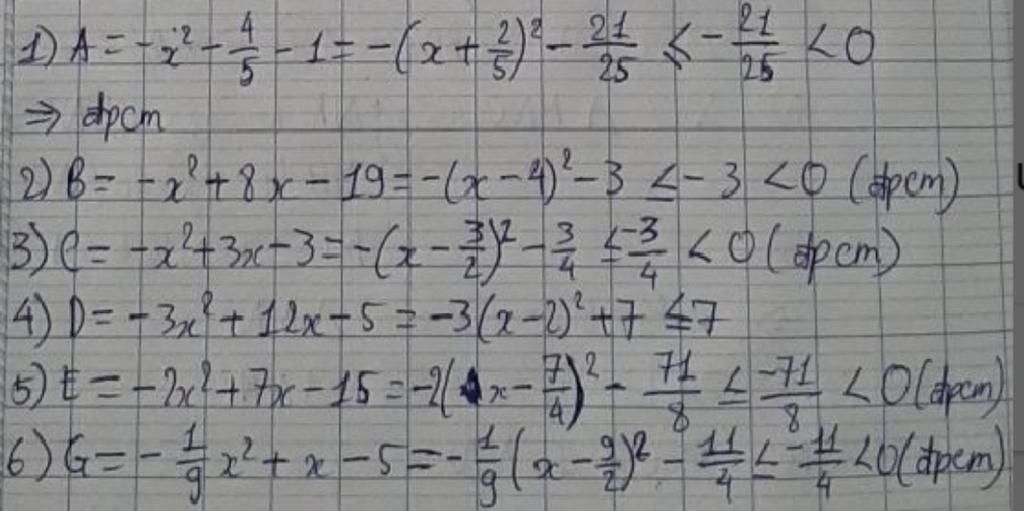 1) A = -x² - 4/5 - 1 = -(x + 2/5)² - 21/25 ≤ -21/25 < 0
⇒ đpcm
2) B = -x² + 8x - 19 = -(x - 4)² - 3 ≤ -3 < 0 (đpcm)
3) C = -x² + 3x - 3 = -(x - 3/2)² - 3/4 ≤ -3/4 < 0 (đpcm)
4) D = -3x² + 12x - 5 = -3(x - 2)² + 7 ≤ 7
5) E = -2x² + 7x - 15 = -2(x - 7/4)² - 71/8 ≤ -71/8 < 0 (đpcm)
6) G = -1/9 x² + x - 5 = -1/9 (x - 9/2)² - 11/4 ≤ -11/4 < 0 (đpcm)